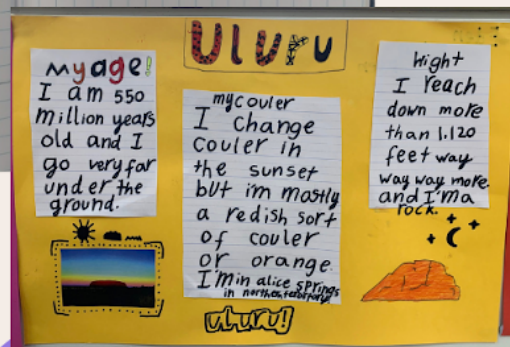 Uluru
my age!
I am 550
million years
old and I
go very far
under the
ground.
my couler
I change
couler in
the sunset
but im mostly
a redish sort
of couler
or orange.
I'm in alice springs
in northen
hight
I reach
down more
than 1,120
feet way
way way more.
and I'm a
rock.
uluru!